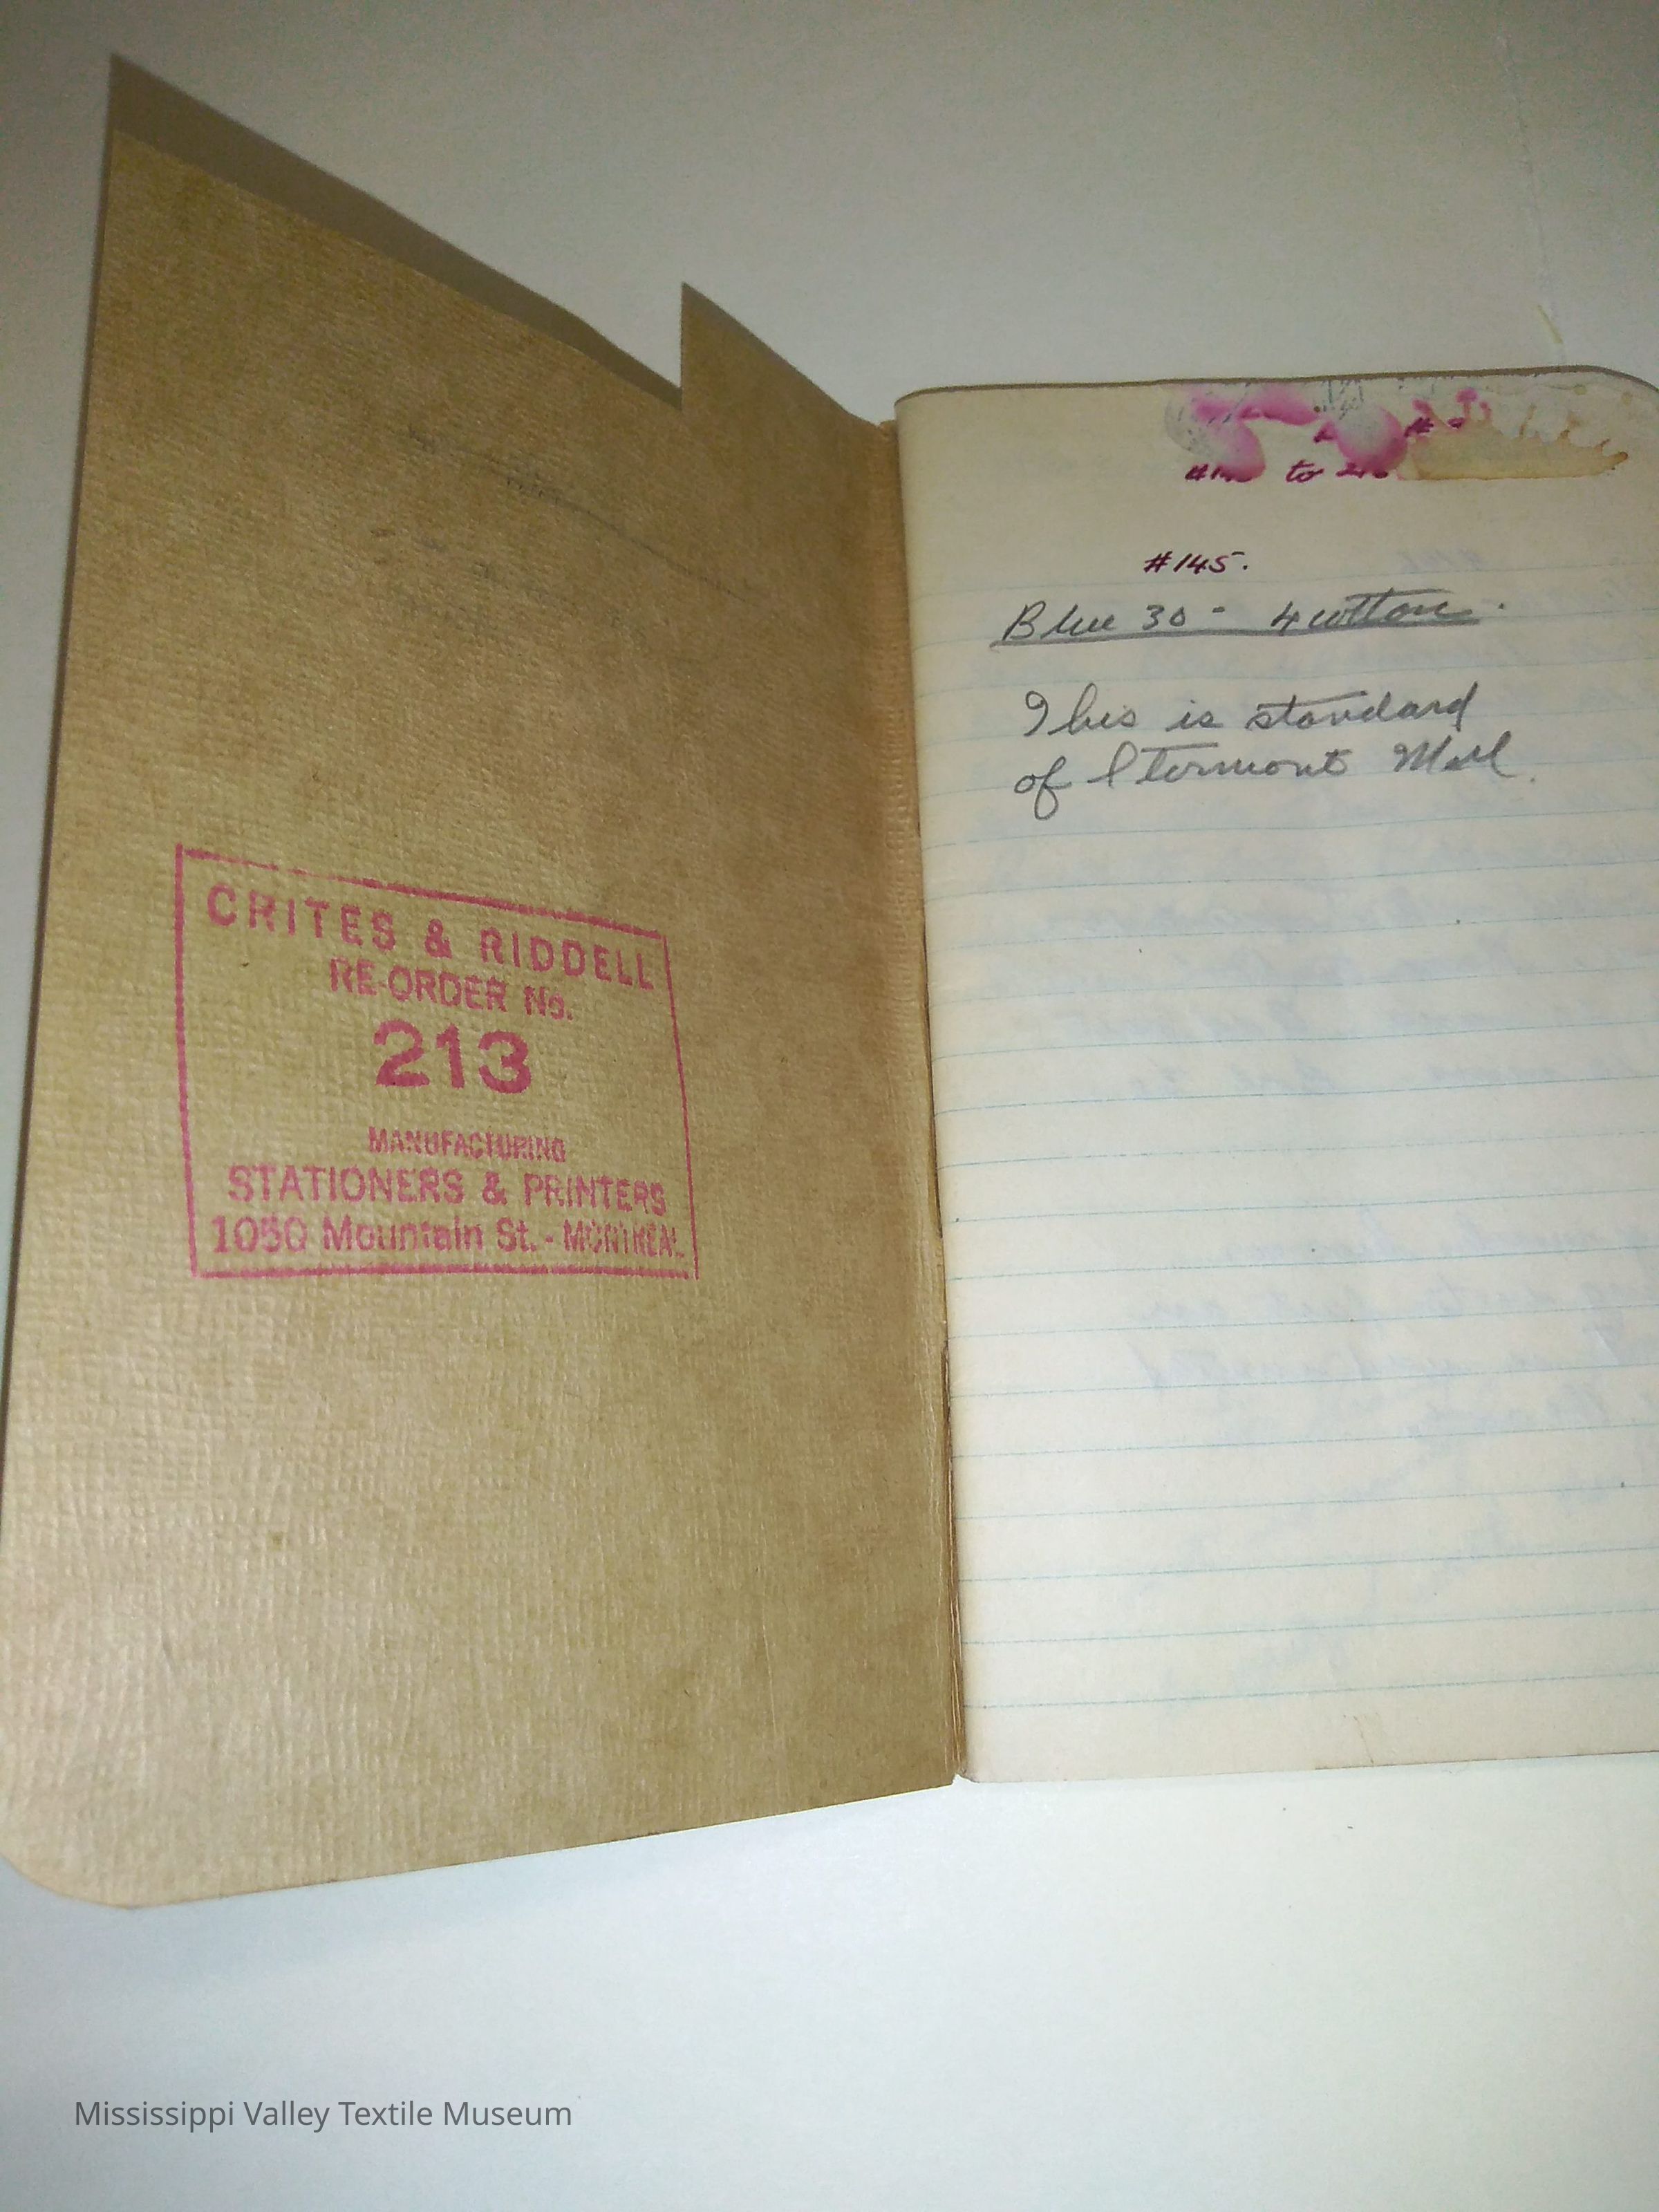 CRITES & RIDDELL
RE-ORDER No.
213
MANUFACTURING
STATIONERS & PRINTERS
1050 Mountain St. - MONTREAL
to
#145.
Blue 30 - 4 cotton.
This is standard
of Stormont Mill.
Mississippi Valley Textile Museum